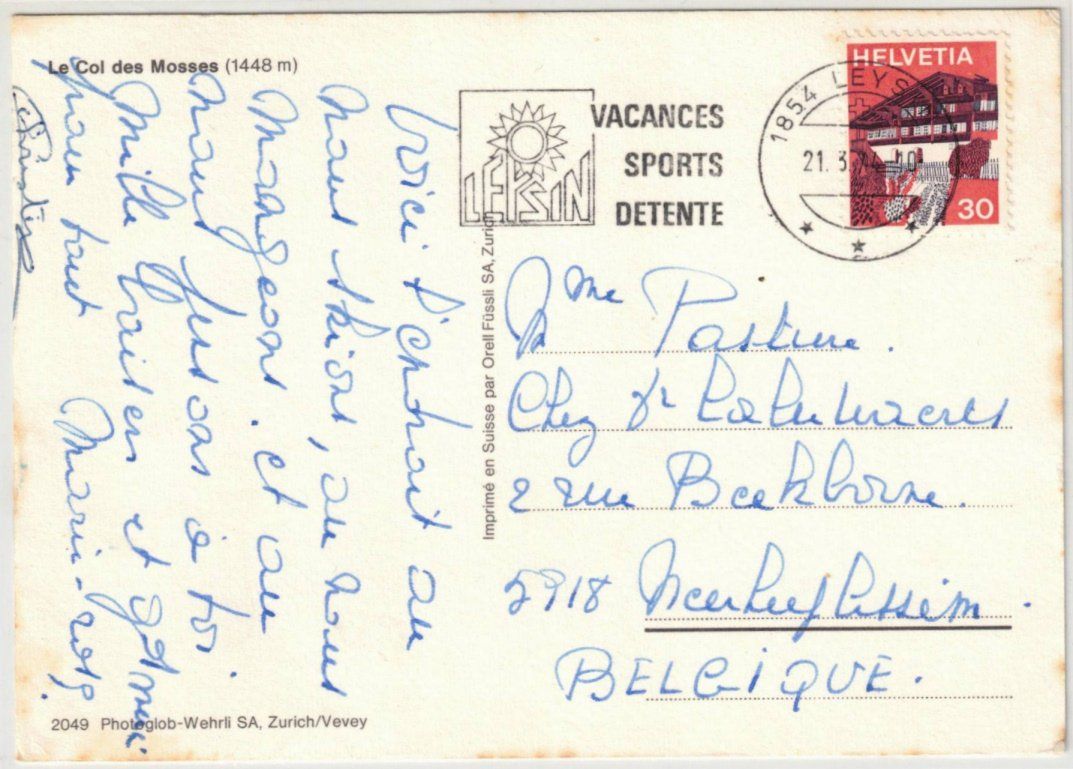 Le Col des Mosses (1448 m)
Voici l'endroit ou
nous skions, ou nous
mangeons. et ou
nous pensons à toi.
Mille baisers et
pour tout
Marie-
LEYSIN
VACANCES
SPORTS
DETENTE
1854 LEYSIN
21.3.74-10
HELVETIA
30
Imprimé en Suisse par Orell Füssli SA, Zurich
Mme Pasture.
Chez Dr
2 rue Beekborne.
BELGIQUE.
2049 Photoglob-Wehrli SA, Zurich/Vevey